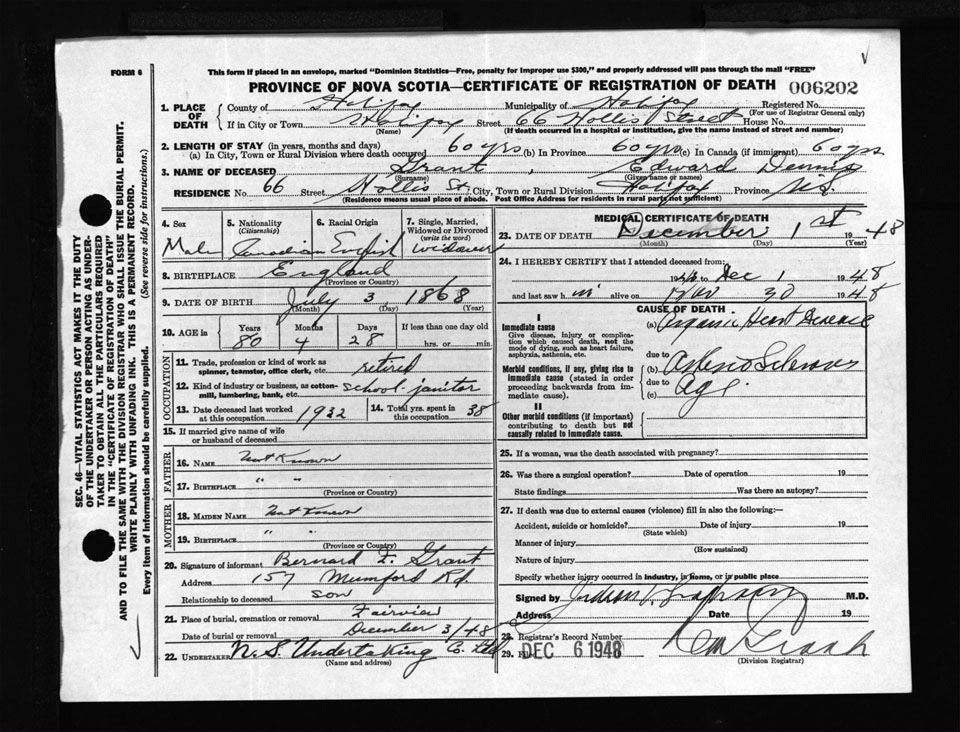 FORM 6
This form if placed in an envelope, marked "Dominion Statistics—Free, penalty for improper use $300," and properly addressed will pass through the mail "FREE"
PROVINCE OF NOVA SCOTIA—CERTIFICATE OF REGISTRATION OF DEATH 006202
1. PLACE OF DEATH
County of Halifax Municipality of Halifax Registered No.
(For use of Registrar General only)
If in City or Town Halifax Street 66 Hollis Street House No.
(Name) (If death occurred in a hospital or institution, give the name instead of street and number)
2. LENGTH OF STAY (in years, months and days)
(a) In City, Town or Rural Division where death occurred 60 yrs (b) In Province 60 yrs (c) In Canada (if immigrant) 60 yrs
3. NAME OF DECEASED Grant, Edward Dennis
(Surname) (Given name or names)
RESIDENCE No. 66 Street Hollis St. City, Town or Rural Division Halifax Province N.S.
(Residence means usual place of abode. Post Office Address for residents in rural parts not sufficient)
4. Sex
Male
5. Nationality
(Citizenship)
Canadian
6. Racial Origin
English
7. Single, Married, Widowed or Divorced
(write the word)
Widower
8. BIRTHPLACE England
(Province or Country)
9. DATE OF BIRTH July 3, 1868
(Month) (Day) (Year)
10. AGE in Years Months Days If less than one day old
80 4 28 hrs. or min.
OCCUPATION
11. Trade, profession or kind of work as spinner, teamster, office clerk, etc. retired
12. Kind of industry or business, as cotton-mill, lumbering, bank, etc. school janitor
13. Date deceased last worked at this occupation 1932
14. Total yrs. spent in this occupation 38
15. If married give name of wife or husband of deceased
FATHER
16. NAME Not Known
17. BIRTHPLACE " "
(Province or Country)
MOTHER
18. MAIDEN NAME Not Known
19. BIRTHPLACE " "
(Province or Country)
20. Signature of informant Bernard F. Grant
Address 157 Mumford Rd.
Relationship to deceased son
21. Place of burial, cremation or removal Fairview
Date of burial or removal December 3/48
22. UNDERTAKER N.S. Undertaking C. Ltd
(Name and address)
MEDICAL CERTIFICATE OF DEATH
23. DATE OF DEATH December 1st 1948
(Month) (Day) (Year)
24. I HEREBY CERTIFY that I attended deceased from:
19 to Dec 1 1948
and last saw h im alive on Nov 30 1948
CAUSE OF DEATH
I
Immediate cause
Give disease, injury or complication which caused death, not the mode of dying, such as heart failure, asphyxia, asthenia, etc.
(a) Organic Heart Disease
due to
Morbid conditions, if any, giving rise to immediate cause (stated in order proceeding backwards from immediate cause).
(b) Arteriosclerosis
due to
(c) Age
II
Other morbid conditions (if important) contributing to death but not causally related to immediate cause.
25. If a woman, was the death associated with pregnancy?
26. Was there a surgical operation? Date of operation 19
State findings Was there an autopsy?
27. If death was due to external causes (violence) fill in also the following:—
Accident, suicide or homicide? Date of injury 19
(State which)
Manner of injury
(How sustained)
Nature of injury
Specify whether injury occurred in industry, in home, or in public place
Signed by M.D.
Address Date 19
28. Registrar's Record Number
29. DEC 6 1948
(Division Registrar)
SEC. 46—VITAL STATISTICS ACT MAKES IT THE DUTY
OF THE UNDERTAKER OR PERSON ACTING AS UNDER-
TAKER TO OBTAIN ALL THE PARTICULARS REQUIRED
IN THE "CERTIFICATE OF REGISTRATION OF DEATH"
AND TO FILE THE SAME WITH THE DIVISION REGISTRAR WHO SHALL ISSUE THE BURIAL PERMIT.
WRITE PLAINLY WITH UNFADING INK. THIS IS A PERMANENT RECORD.
Every item of information should be carefully supplied. (See reverse side for instructions.)